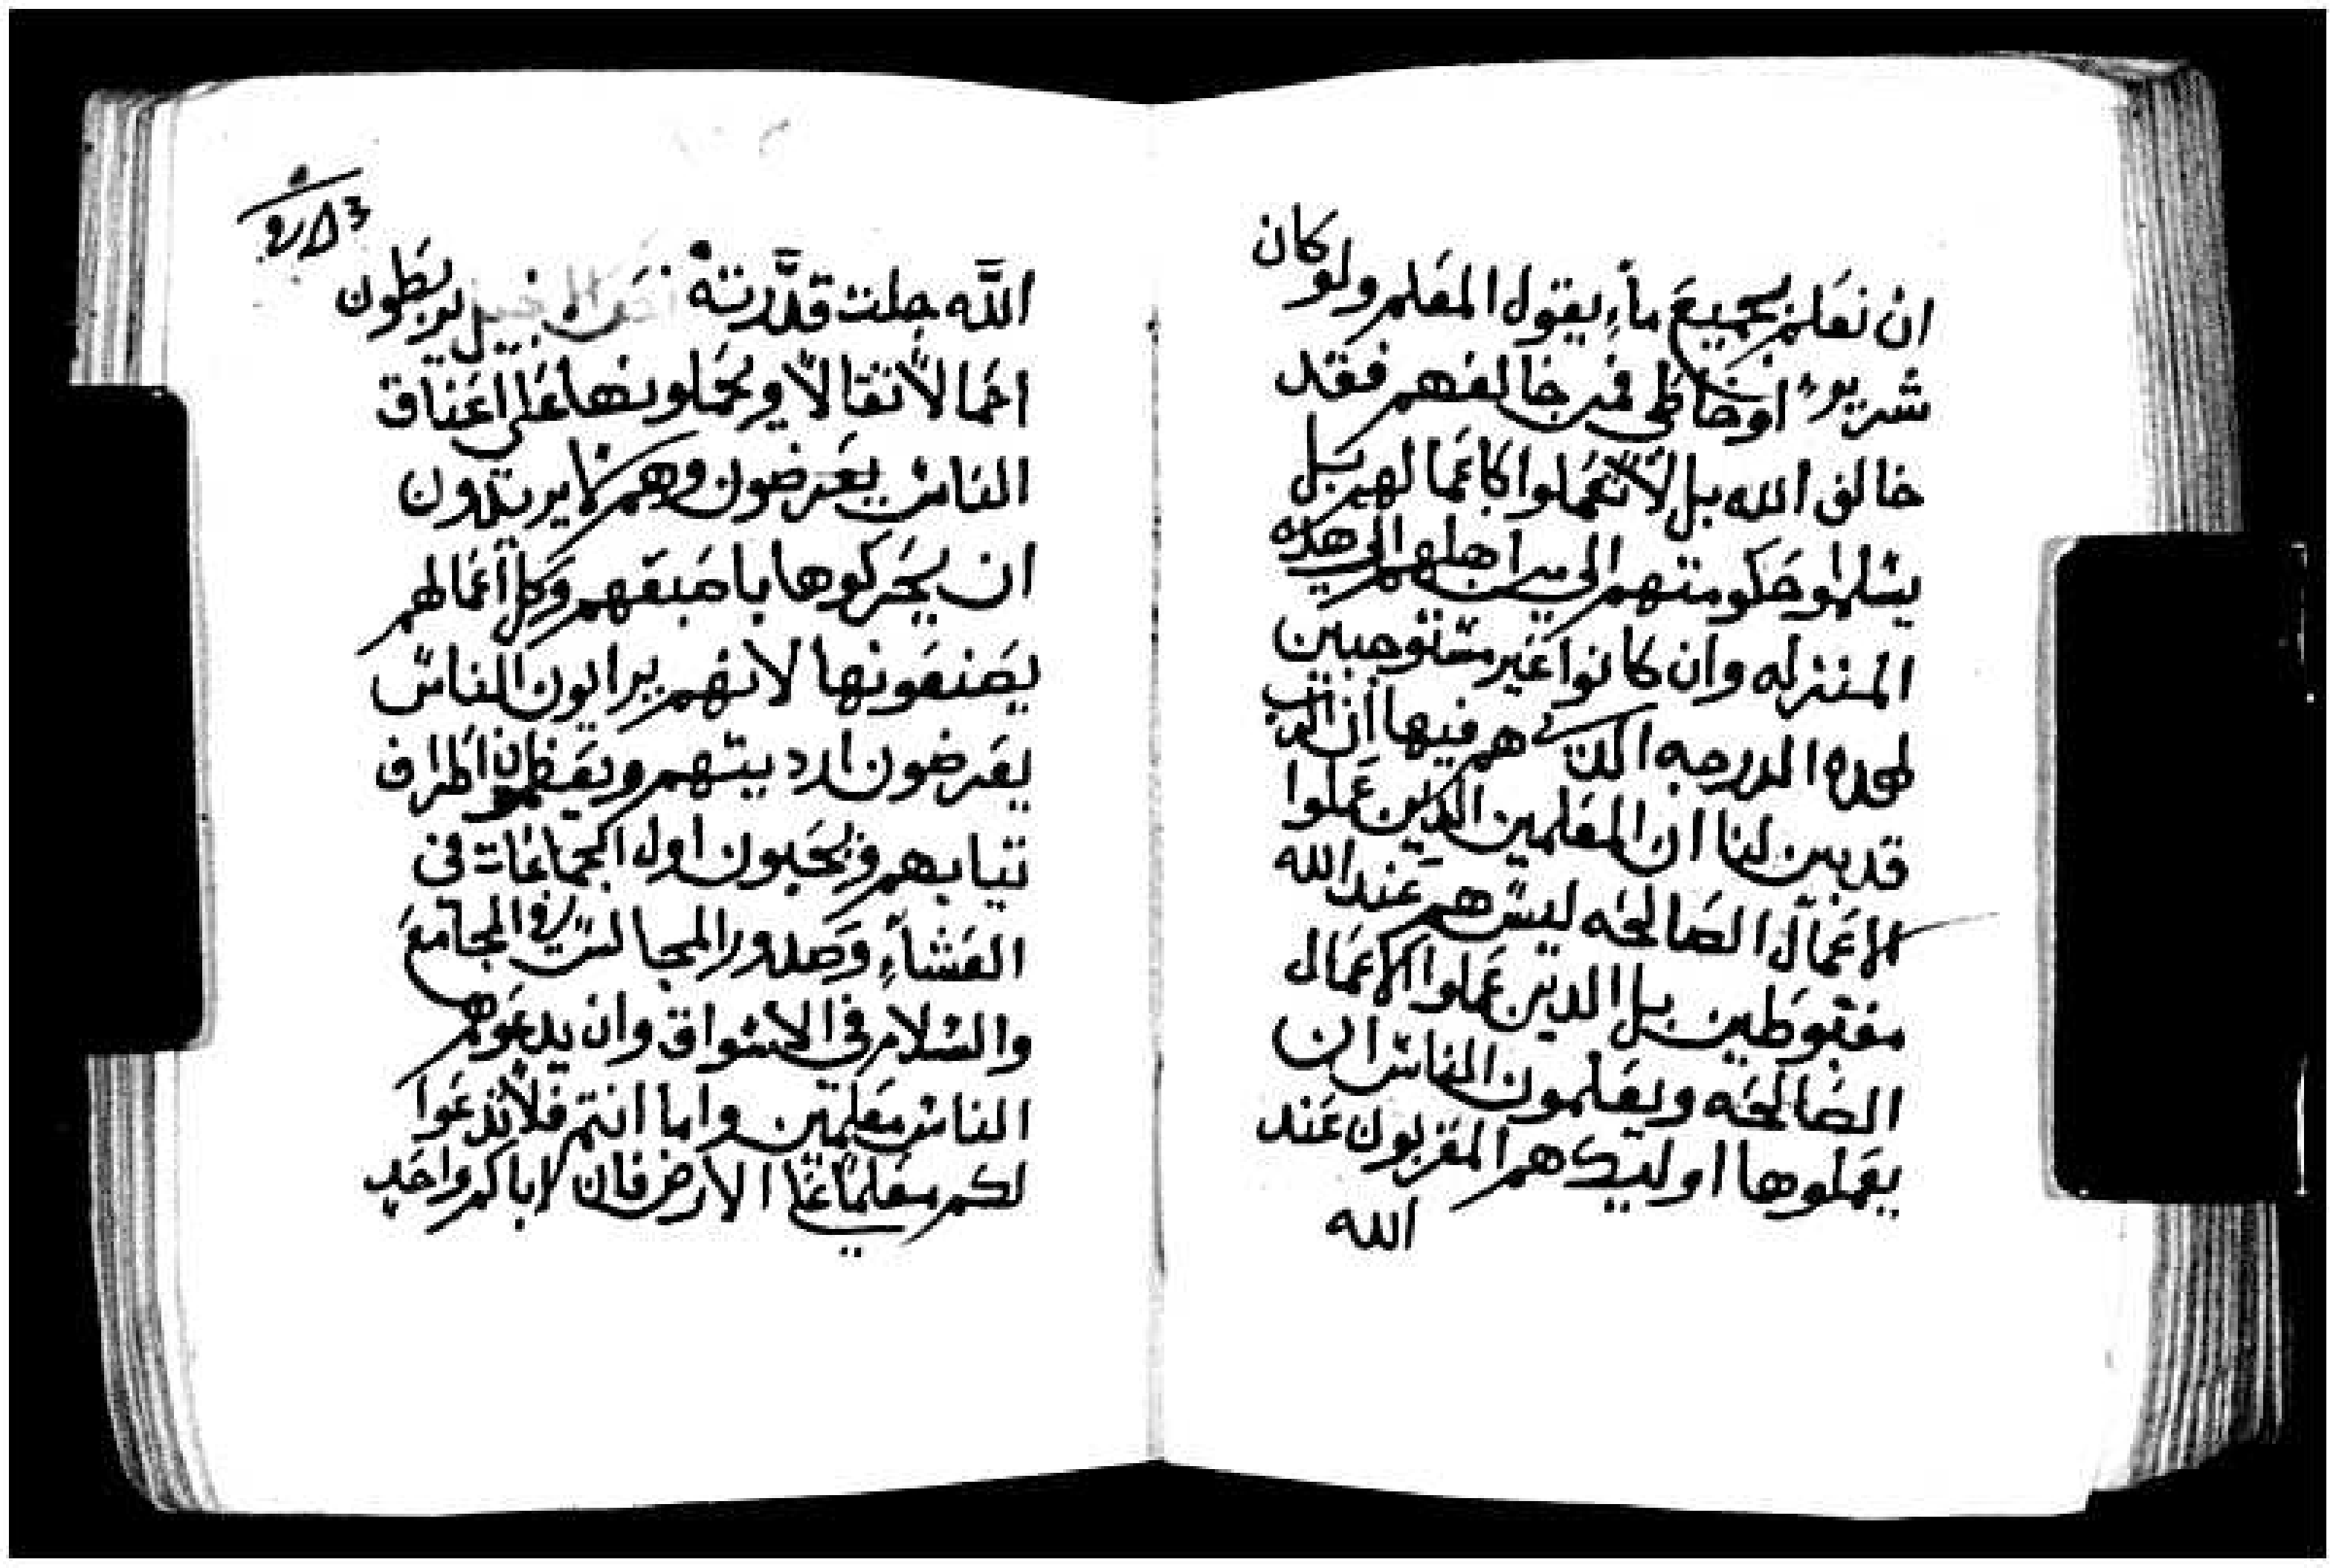 ان نعلم بجميع ماء يقول المعلم ولو كان
شرير او خاطي فمن خالفهم فقد
خالف الله بل لا تعملوا كاعمالهم بل
يسلموا حكومتهم الى من اجلهم الى هذه
المنزله وان كانوا غير مستوجبين
لهده الدرجه التي هم فيها ان الرب
قد بين لنا ان المعلمين الدين عملوا
الاعمال الصالحه ليس هم عند الله
مغبوطين بل الدين عملوا الاعمال
الصالحه ويعلمون الناس ان
يعملوها اوليك هم المقربون عند
الله
الله جلت قدرته يربطون
احمالاً تقالاً ويحملونها على اعناق
الناس يعرضون وهم لا يريدون
ان يحركوها باصبعهم وكل اعمالهم
يصنعونها لانهم يرايون الناس
يعرضون ارديتهم ويعظمون اطراف
تيابهم ويحبون اول الجماعات في
العشاء وصدور المجالس في المجامع
والسلام في الاسواق وان يدعوهم
الناس معلمين واما انتم فلا تدعوا
لكم معلماً على الارض فان اباكم واحد